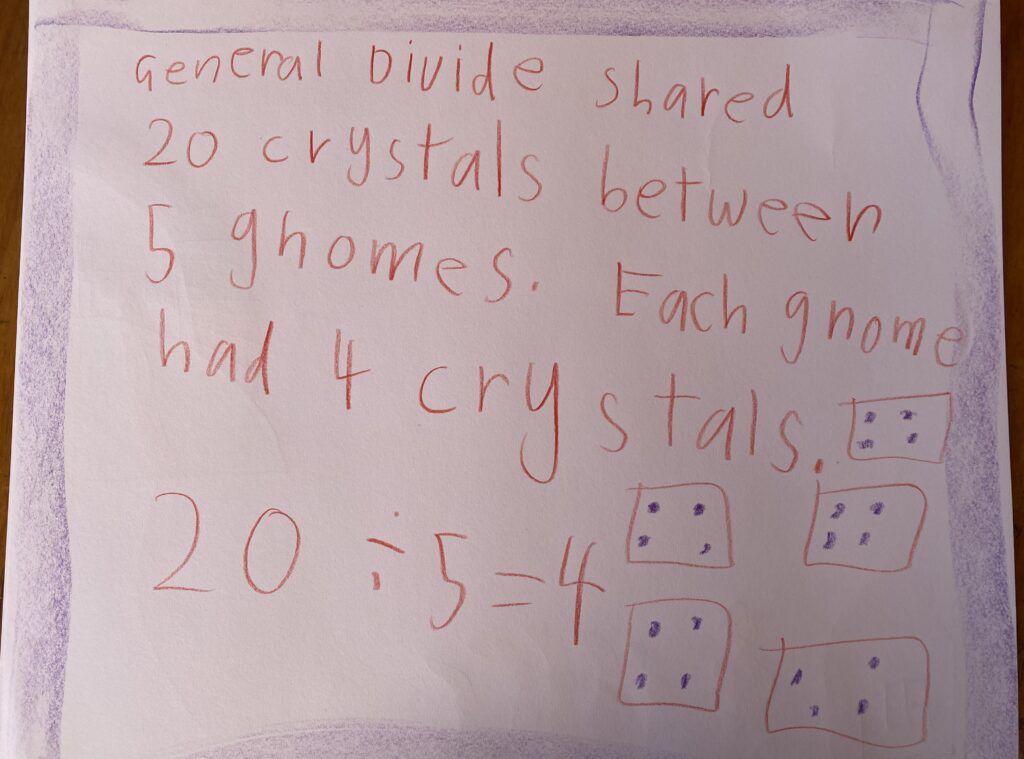 General Divide shared
20 crystals between
5 ghomes. Each gnome
had 4 crystals.
20 ÷ 5 = 4